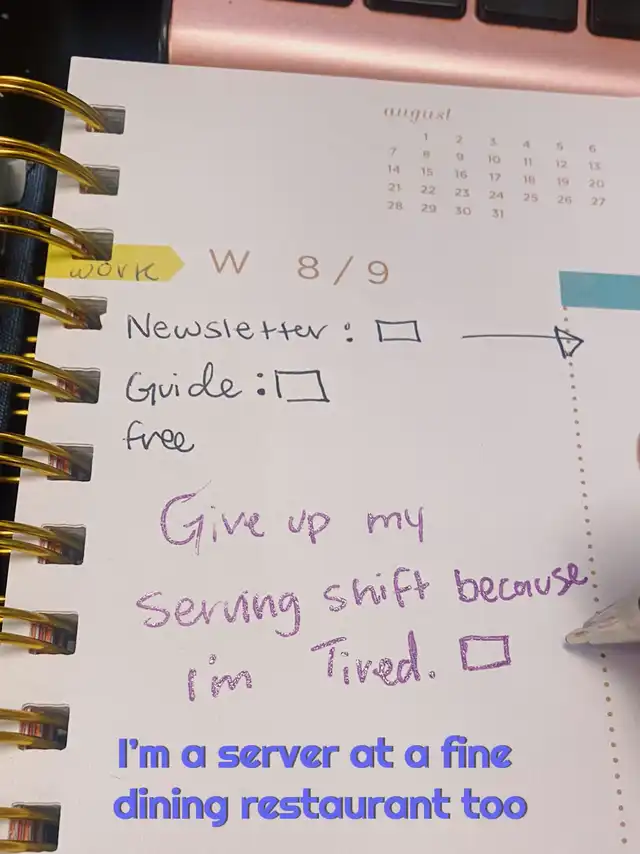 august
1 2 3 4 5 6
7 8 9 10 11 12 13
14 15 16 17 18 19 20
21 22 23 24 25 26 27
28 29 30 31
work W 8/9
Newsletter:
Guide:
free
Give up my
serving shift because
I'm Tired.
I'm a server at a fine
dining restaurant too